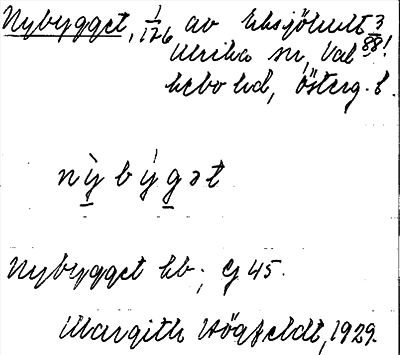 Nybygget, 1/126 av Eksjöhult 3/88!
Ulrika sn, Val-
kebo hd, Österg. l.
nỳbýgət
Nybygget kb; G 45.
Margith Högfeldt, 1929.